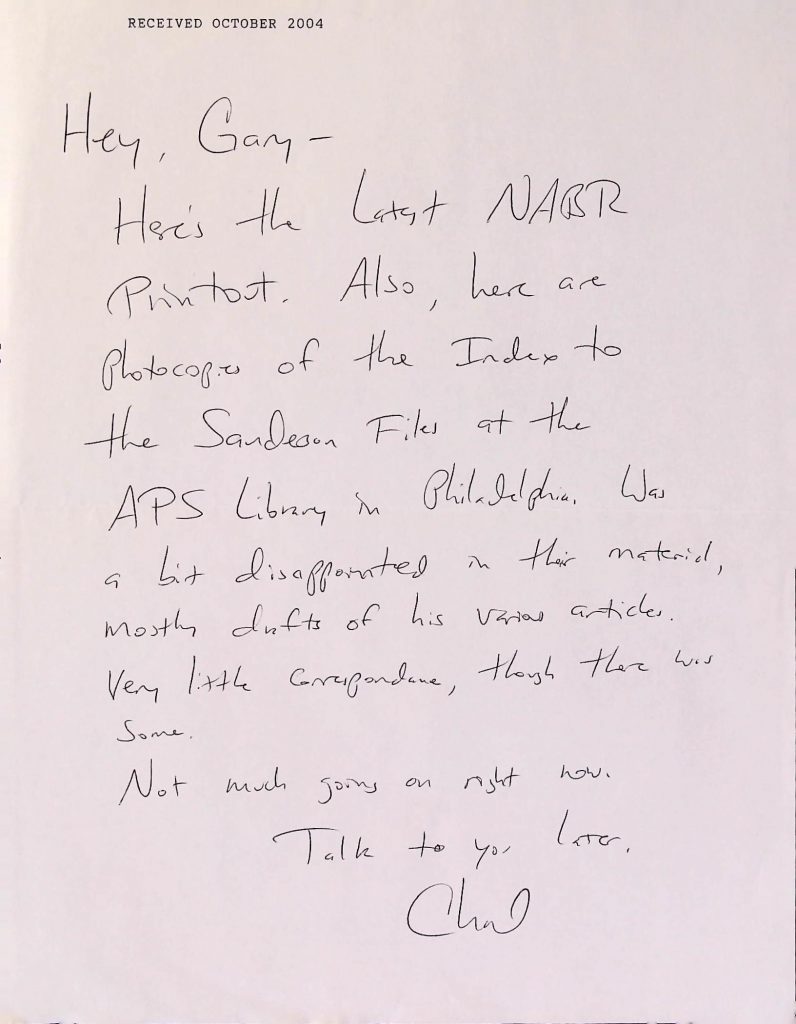 RECEIVED OCTOBER 2004
Hey, Gary -
Here's the latest NABR
Printout. Also, here are
photocopies of the Index to
the Sanderson Files at the
APS Library in Philadelphia. Was
a bit disappointed in their material,
mostly drafts of his various articles.
Very little correspondance, though there was
some.
Not much going on right now.
Talk to you later.
Chad